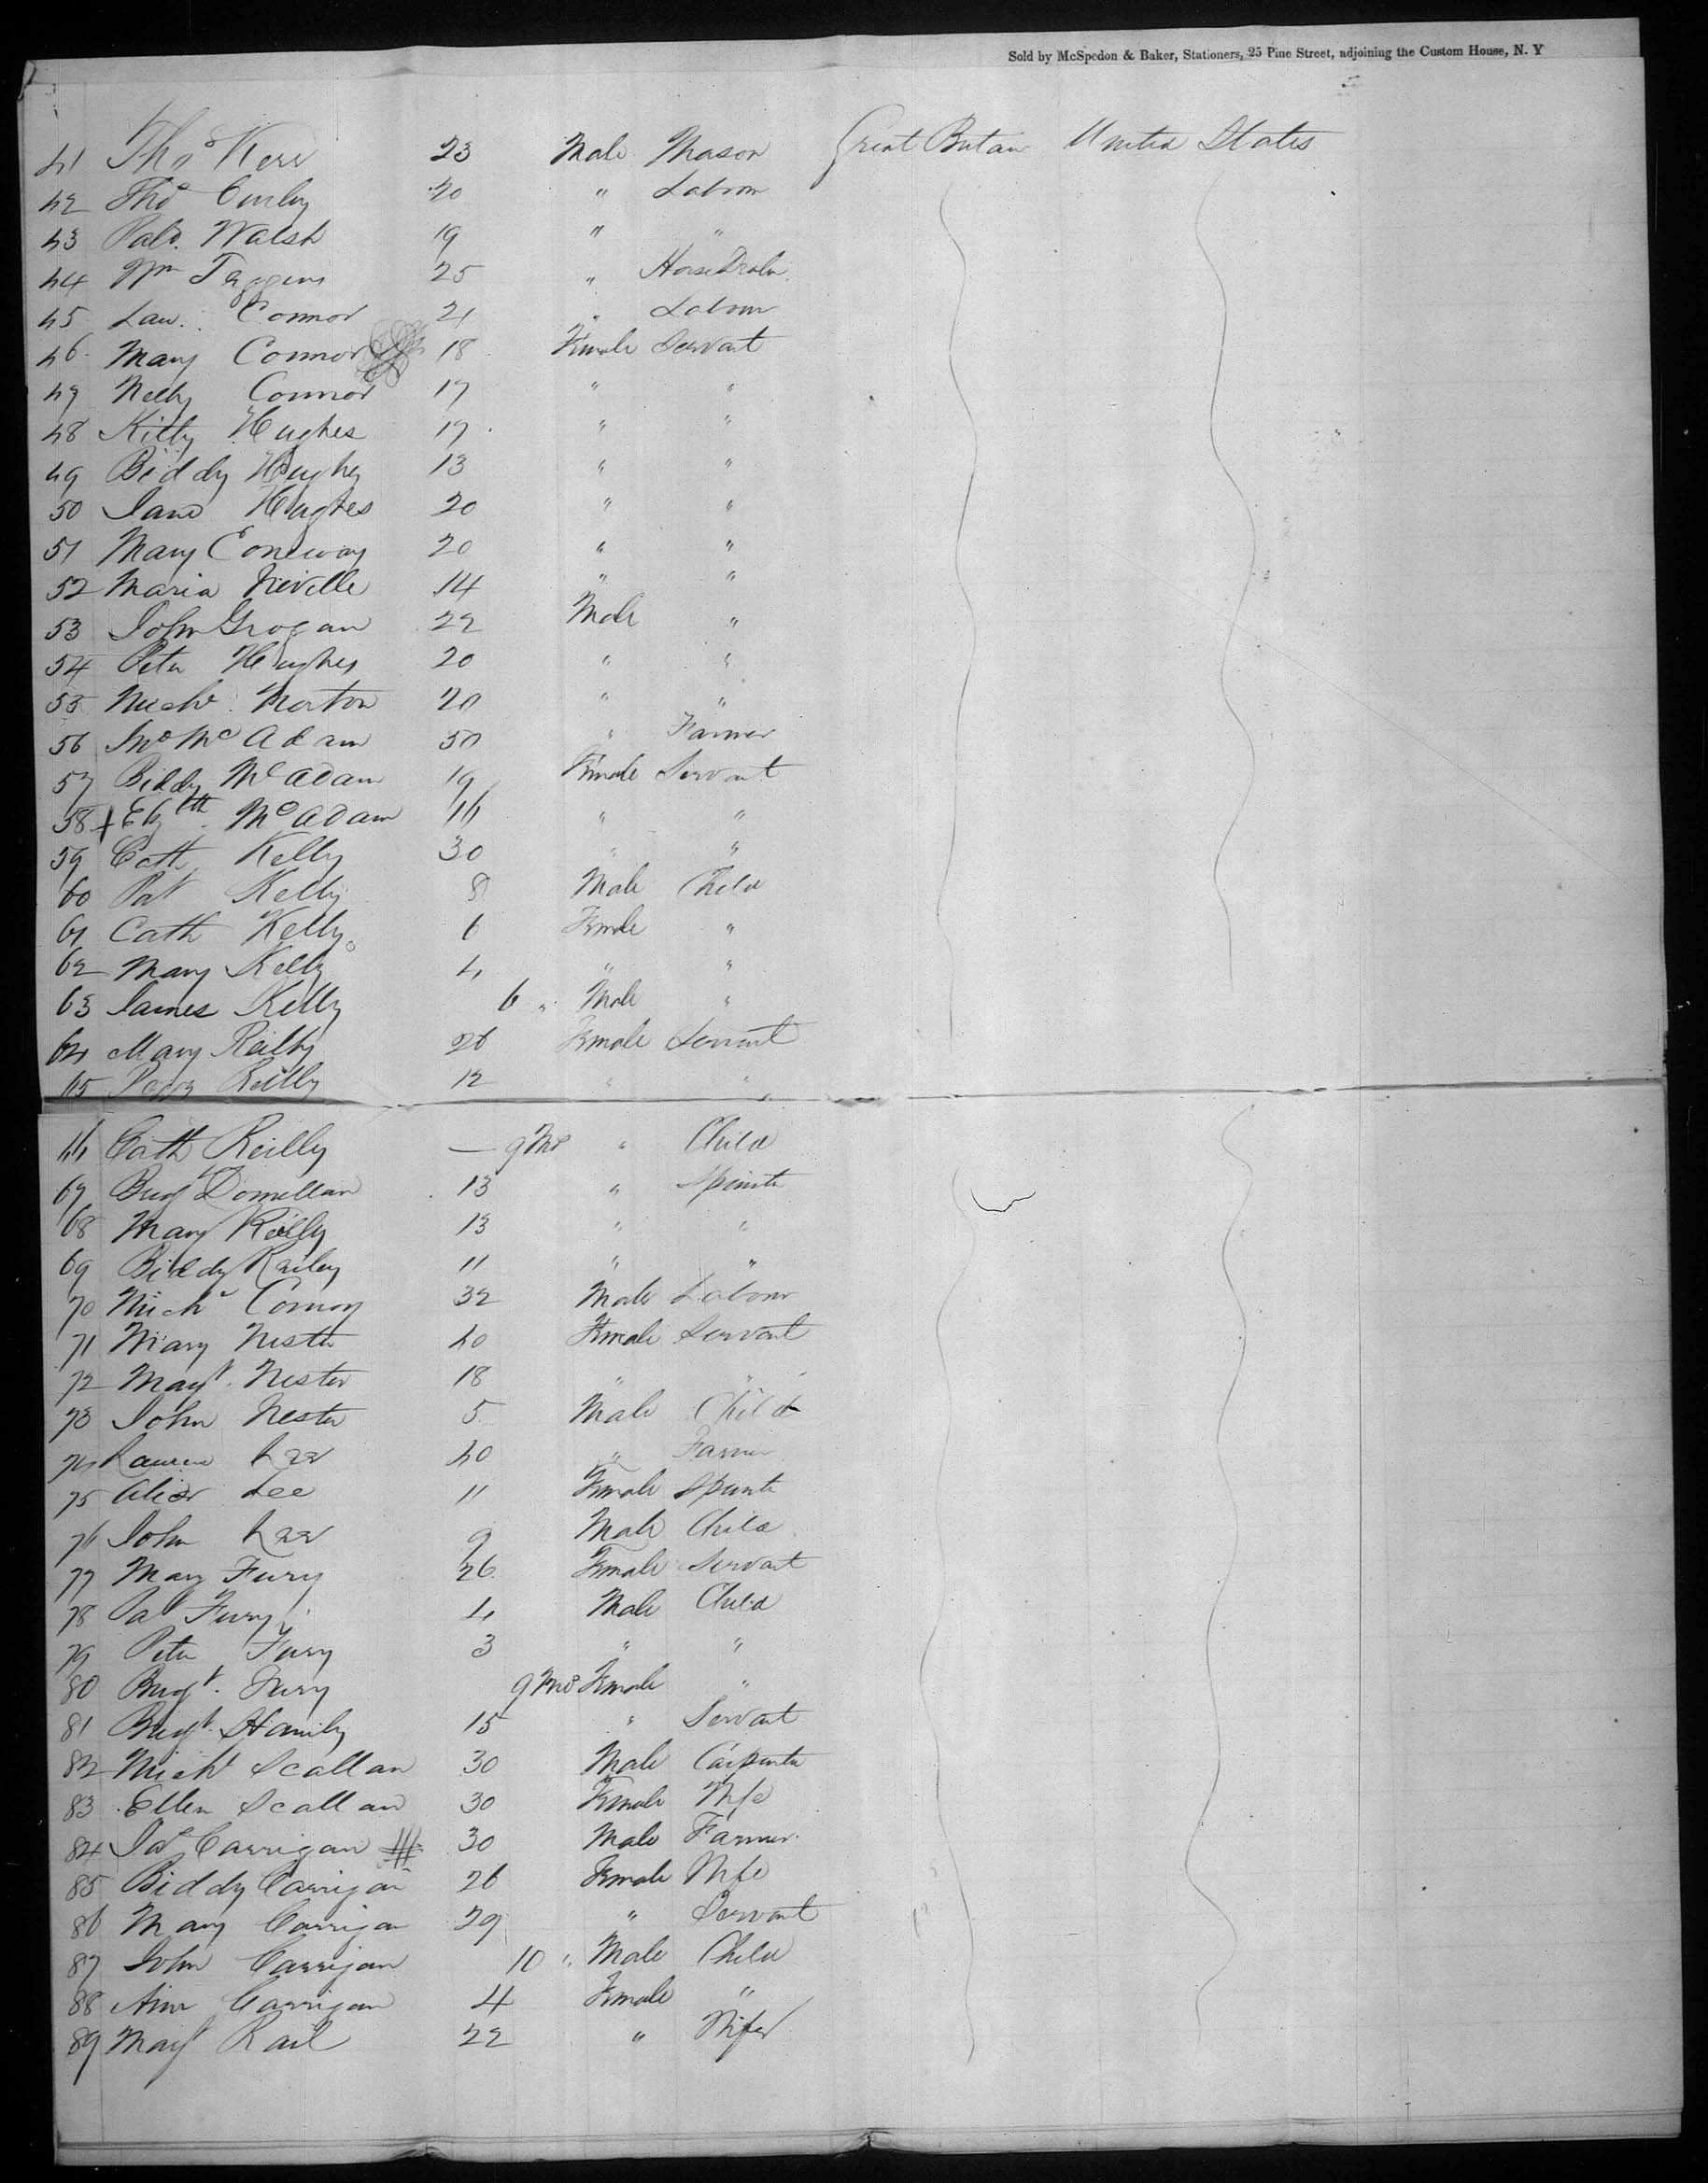 Sold by McSpedon & Baker, Stationers, 25 Pine Street, adjoining the Custom House, N. Y
41 Thos Kerr 23 Male Mason Great Britain United States
42 Thos Curley 20 " Labour
43 Patk. Walsh 19 " "
44 Wm Taggers 25 " Horse Dealer
45 Law. Connor 21 " Labour
46 Mary Connor 18 Female Servant
47 Nelly Connor 17 " "
48 Kitty Hughes 17 " "
49 Biddy Hughes 13 " "
50 Jane Hughes 20 " "
51 Mary Coneway 20 " "
52 Maria Neville 14 " "
53 John Grogan 22 Male "
54 Peter Hughes 20 " "
55 Michl. Norton 20 " "
56 Jno McAdam 50 " Farmer
57 Biddy McAdam 19 Female Servant
58 + Elizth. McAdam 16 " "
59 Cath Kelly 30 " "
60 Pat Kelly 8 Male Child
61 Cath Kelly 6 Female "
62 Mary Kelly 4 " "
63 James Kelly 6 " Male "
64 Mary Reilly 26 Female Servant
65 Peggy Reilly 12 " "
66 Cath Reilly — 9 Mos " Child
67 Bridgt Donnellan 13 " Spinster
68 Mary Reilly 13 " "
69 Biddy Railey 11 " "
70 Michl Conroy 32 Male Labour
71 Mary Nester 40 Female Servant
72 Margt. Nester 18 " "
73 John Nester 5 Male Child
74 Lee 40 " Farmer
75 Alice Lee 11 Female Spinster
76 John Lee 9 Male Child
77 Mary Fury 26 Female Servant
78 Pat Fury 4 Male Child
79 Peter Fury 3 " "
80 Bridgt. Fury 9 Mos Female "
81 Bridgt. Hanily 15 " Servant
82 Michl Scallan 30 Male Carpenter
83 Ellen Scallan 30 Female Wife
84 Carrigan 30 Male Farmer
85 Biddy Carrigan 26 Female Wife
86 Mary Carrigan 29 " Servant
87 John Carrigan 10 " Male Child
88 Ann Carrigan 4 Female "
89 Margt Rail 22 " Wife